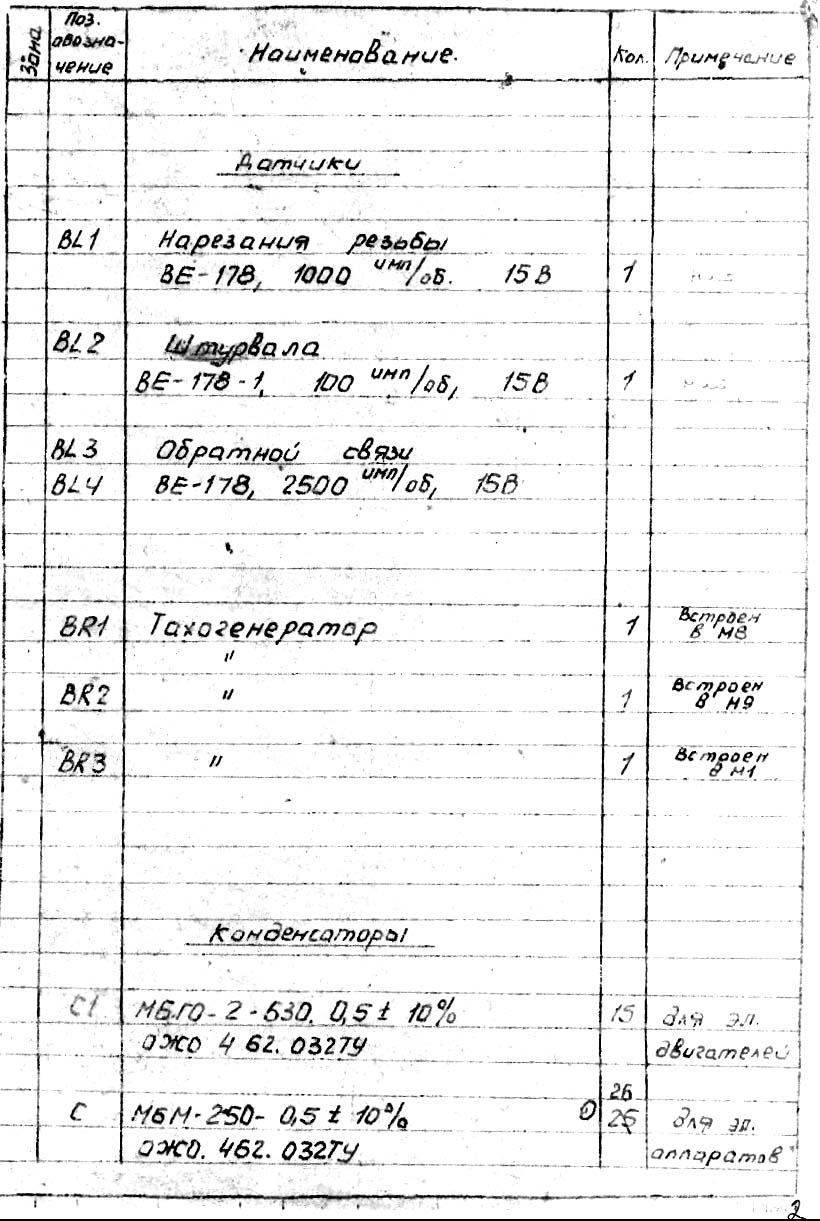 Зона Поз. обозначение Наименование. Кол. Примечание
Датчики
BL1 Нарезания резьбы
ВЕ-178, 1000 имп/об. 15В 1
BL2 Штурвала
ВЕ-178-1, 100 имп/об, 15В 1
BL3 Обратной связи
BL4 ВЕ-178, 2500 имп/об, 15В
BR1 Тахогенератор 1 Встроен в М8
"
BR2 " 1 Встроен в М9
BR3 " 1 Встроен в М1
Конденсаторы
C1 МБГО-2-630. 0,5 ± 10% 15 для эл.
ОЖО 462.032ТУ двигателей
26
C МБМ-250- 0,5 ± 10% 0 25 для эл.
ОЖО.462.032ТУ аппаратов
2